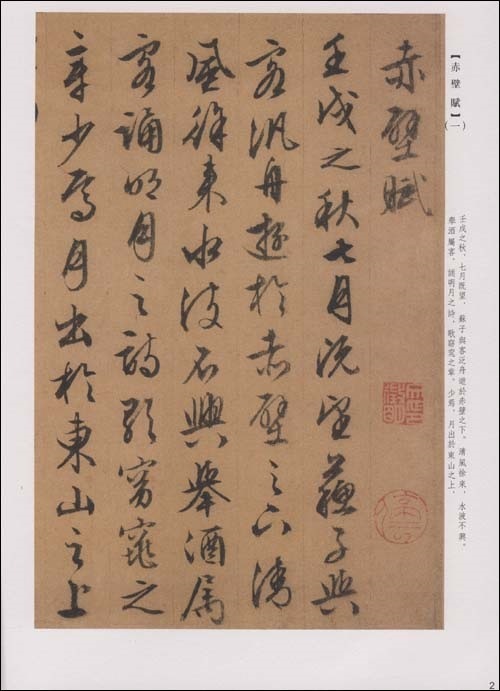 【赤壁賦】(一)
壬戌之秋、七月既望、蘇子與客泛舟遊於赤壁之下。清風徐來，水波不興。
舉酒屬客，誦明月之詩，歌窈窕之章。少焉，月出於東山之上，
赤壁賦
壬戌之秋七月既望蘇子與
客汎舟遊於赤壁之下清
風徐來水波不興舉酒属
客誦明月之詩歌窈窕之
章少焉月出於東山之上
2